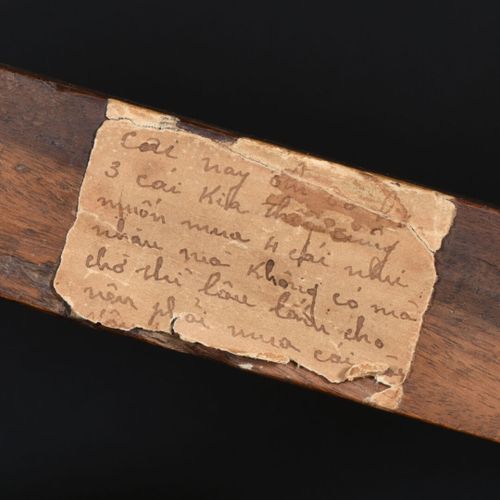 Cái nay
3 cái Kia cũng
muốn mua 4 cái như
nhau mà không có mà
chờ thì lâu lắm cho
nên phải mua cái